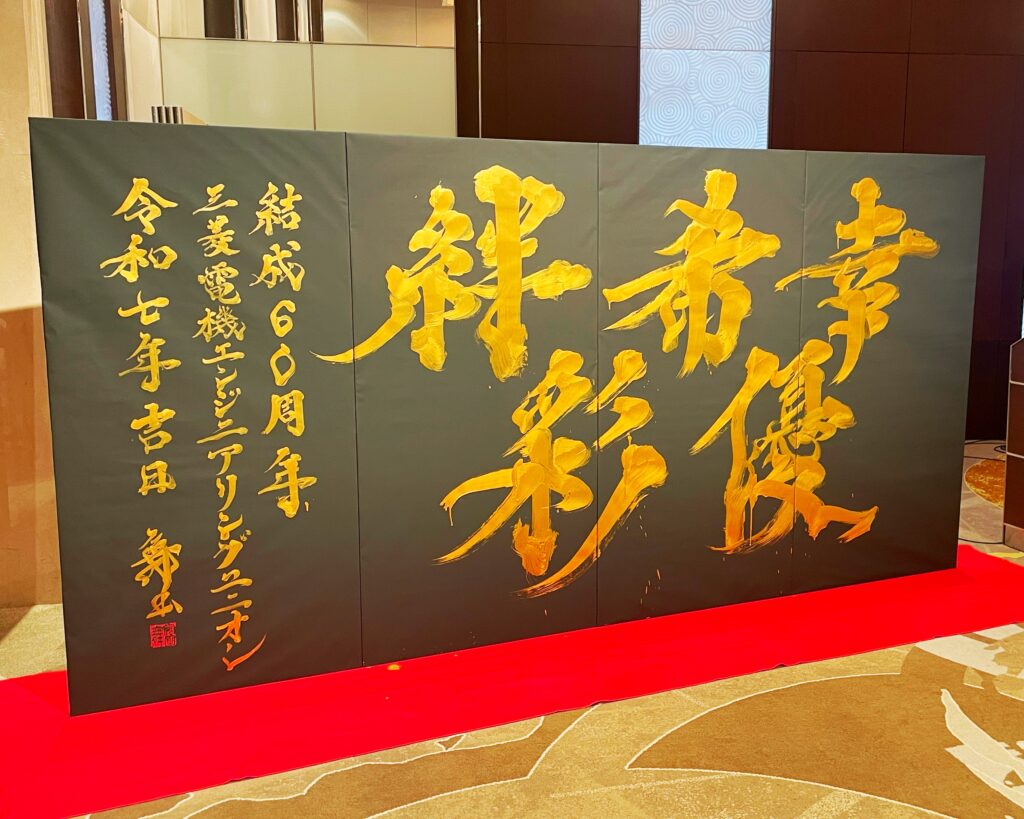 幸優
希
彩
絆
結成60周年
三菱電機エンジニアリングユニオン
令和七年吉日